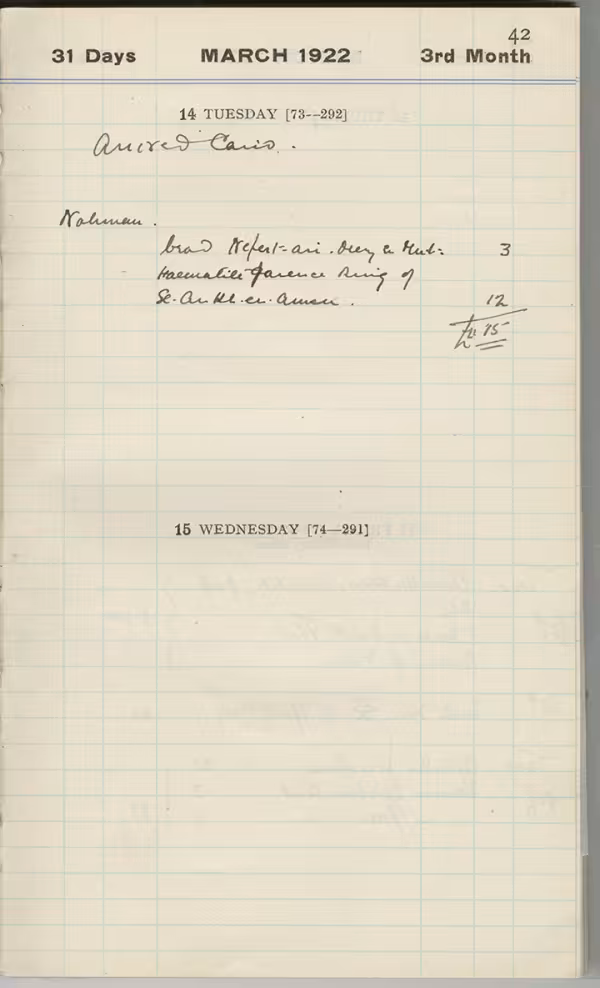 42
31 Days MARCH 1922 3rd Month
14 TUESDAY [73--292]
Arrived Cairo.
Nahman.
bead Nefert-ari. & Mut= 3
Haematite faience Ring of
Se.Ankh.en.Amen. 12
£E 15
15 WEDNESDAY [74—291]